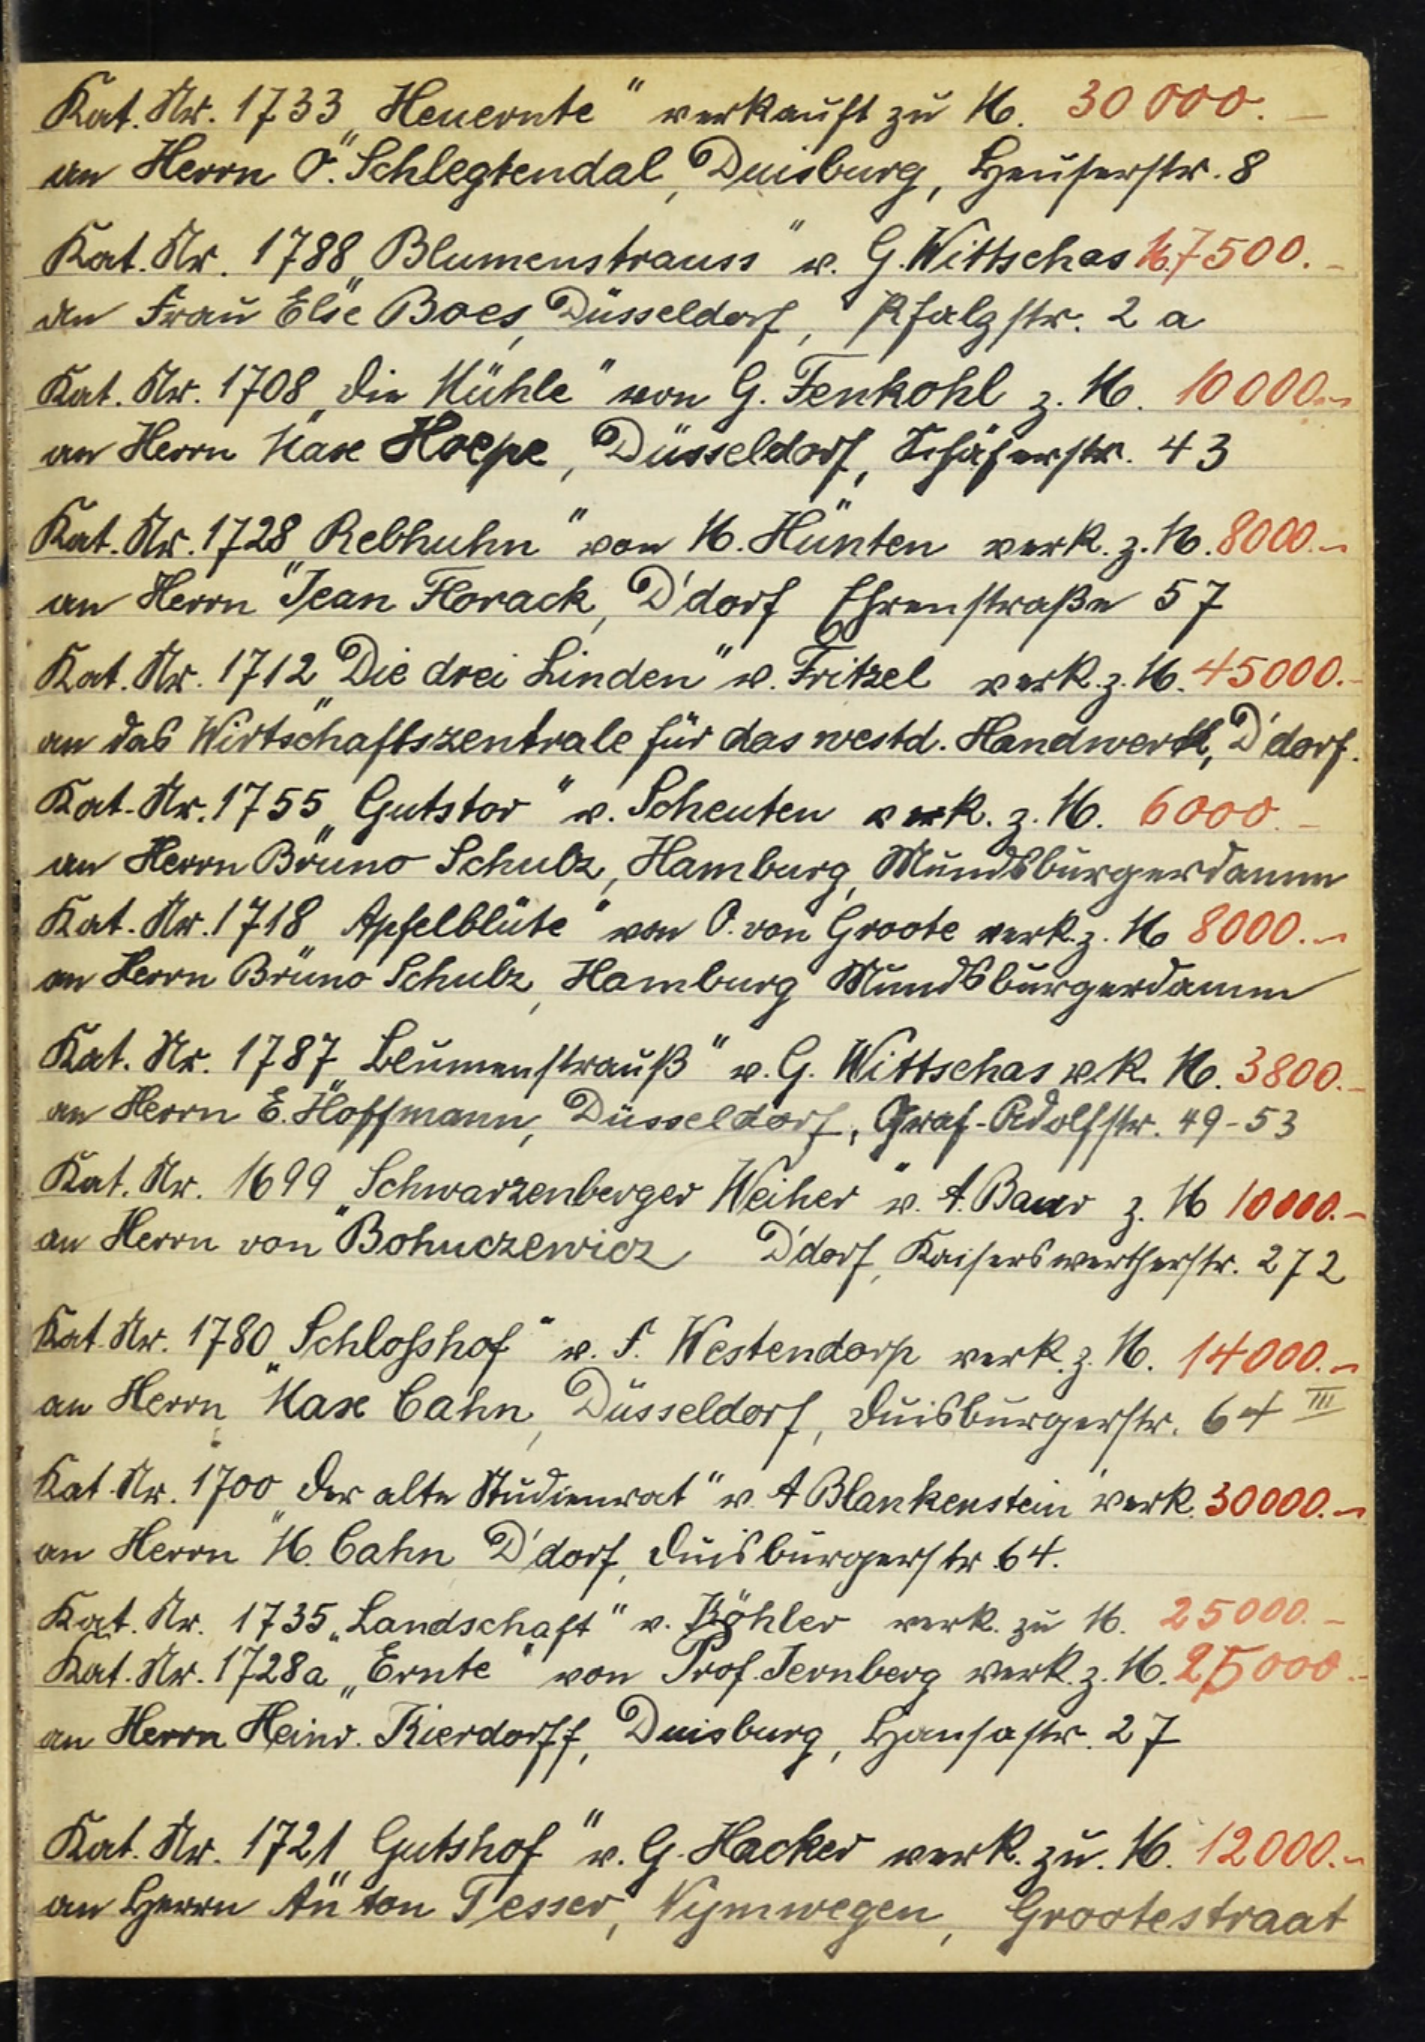 Kat. Nr. 1733 „Heuernte" verkauft zu M. 30 000.-
an Herrn O. Schlegtendal, Duisburg, Heuserstr. 8
Kat. Nr. 1788 „Blumenstrauss" v. G. Wittschas M. 7500.-
an Frau Else Boes, Düsseldorf, Pfalzstr. 2 a
Kat. Nr. 1708 „Die Mühle" von G. Fenkohl z. M. 10000.-
an Herrn Max Hoepe, Düsseldorf, Schäferstr. 43
Kat. Nr. 1728 „Rebhuhn" von M. Hünten verk. z. M. 8000.-
an Herrn Jean Florack, D'dorf Ehrenstraße 57
Kat. Nr. 1712 „Die drei Linden" v. Fritzel verk. z. M. 45000.-
an das Wirtschaftszentrale für das westd. Handwerk, D'dorf.
Kat. Nr. 1755 „Gutstor" v. Scheuten verk. z. M. 6000.-
an Herrn Bruno Schulz, Hamburg, Mundsburgerdamm
Kat. Nr. 1718 „Apfelblüte" von O. von Groote verk. z. M 8000.-
an Herrn Bruno Schulz, Hamburg Mundsburgerdamm
Kat. Nr. 1787 „Blumenstrauß" v. G. Wittschas vk. M. 3800.-
an Herrn E. Hoffmann, Düsseldorf, Graf-Adolfstr. 49-53
Kat. Nr. 1699 „Schwarzenberger Weiher" v. A. Baur z. M 10000.-
an Herrn von Bohuczewicz D'dorf, Kaiserswertherstr. 272
Kat. Nr. 1780 „Schloßhof" v. F. Westendorp verk. z. M. 14000.-
an Herrn Max Cahn, Düsseldorf, Duisburgerstr. 64 III
Kat. Nr. 1700 „Der alte Studienrat" v. A Blankenstein verk. 30000.-
an Herrn M. Cahn D'dorf, Duisburgerstr. 64.
Kat. Nr. 1735 „Landschaft" v. Köhler verk. zu M. 25000.-
Kat. Nr. 1728a „Ernte" von Prof. Jernberg verk. z. M. 25000.-
an Herrn Heinr. Kierdorff, Duisburg, Hansastr. 27
Kat. Nr. 1721 „Gutshof" v. G. Hacker verk. zu. M. 12000.-
an Herrn Anton Tesser, Nymwegen, Grootestraat